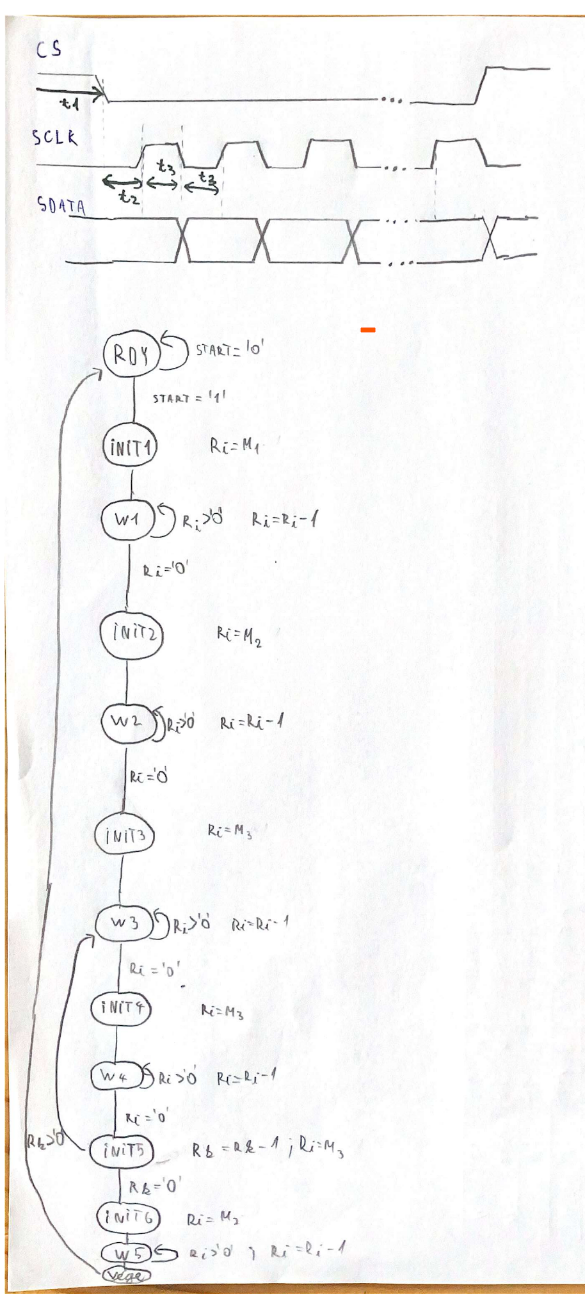 CS
t1
SCLK
t3
t2
t3
SDATA
RDY START='0'
START='1'
INIT1 Ri=M1
W1 Ri>'0' Ri=Ri-1
Ri='0'
INIT2 Ri=M2
W2 Ri>'0' Ri=Ri-1
Ri='0'
INIT3 Ri=M3
W3 Ri>'0' Ri=Ri-1
Ri='0'
INIT4 Ri=M3
W4 Ri>'0' Ri=Ri-1
Ri='0'
Rk>'0' INIT5 Rk=Rk-1; Ri=M3
Rk='0'
INIT6 Ri=M3
W5 Ri>'0'; Ri=Ri-1